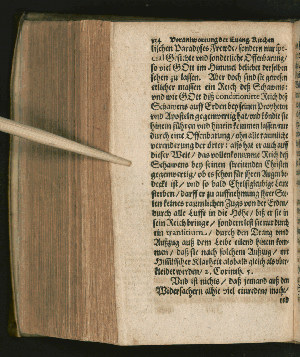 314 Verantwortung der Evang. Kirchen
lischen Paradyses Frewde / sondern nur spe-
cial Gesichte und sonderliche Offenbarung /
so viel GOtt im Himmel beliebet derselben
sehen zu lassen. Aber doch sind sie gewesen
etlicher massen ein Reich deß Schawens:
und wie GOtt diß conditionirte Reich deß
Schawens auff Erden bey seinen Propheten
und Aposteln gegenwertig hat / und köndte sie
hinein führen und hinein kommen lassen nur
durch eine Offenbarung / ohn alle räumliche
verenderung der örter: also hat er auch auff
dieser Welt / das vollenkommene Reich deß
Schawens bey seinen streitenden Christen
gegenwertig / ob es schon für ihren Augen be-
deckt ist / und so bald Christgläubige Leute
sterben / darff er zu auffnehmung ihrer See-
len keines räumlichen Zugs von der Erden /
durch alle Lufft in die Höhe / biß er sie in
sein Reich bringe / sondern leßt sie nur durch
ein transitum / durch den Gang und
Außzug auß dem Leibe eilend hinein kom-
men / daß sie nach solchem Außzug / mit
Himlischer Klarheit alsbald gleich als über-
kleidet werden / 2. Corinth. 5.
Und ist nichts / daß jemand auß den
Widersachern alhie viel einredens mache /
und